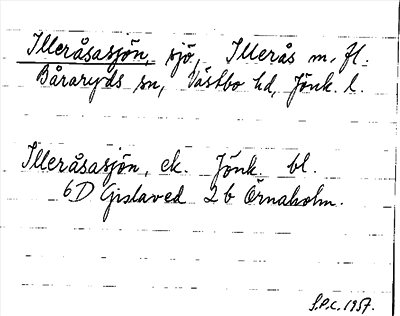 Illeråsasjön, sjö, Illerås m. fl.
Båraryds sn, Västbo hd, Jönk. l.
Illeråsasjön, ek. Jönk. bl.
6D Gislaved 2b Örnaholm.
S.P.C. 1957.